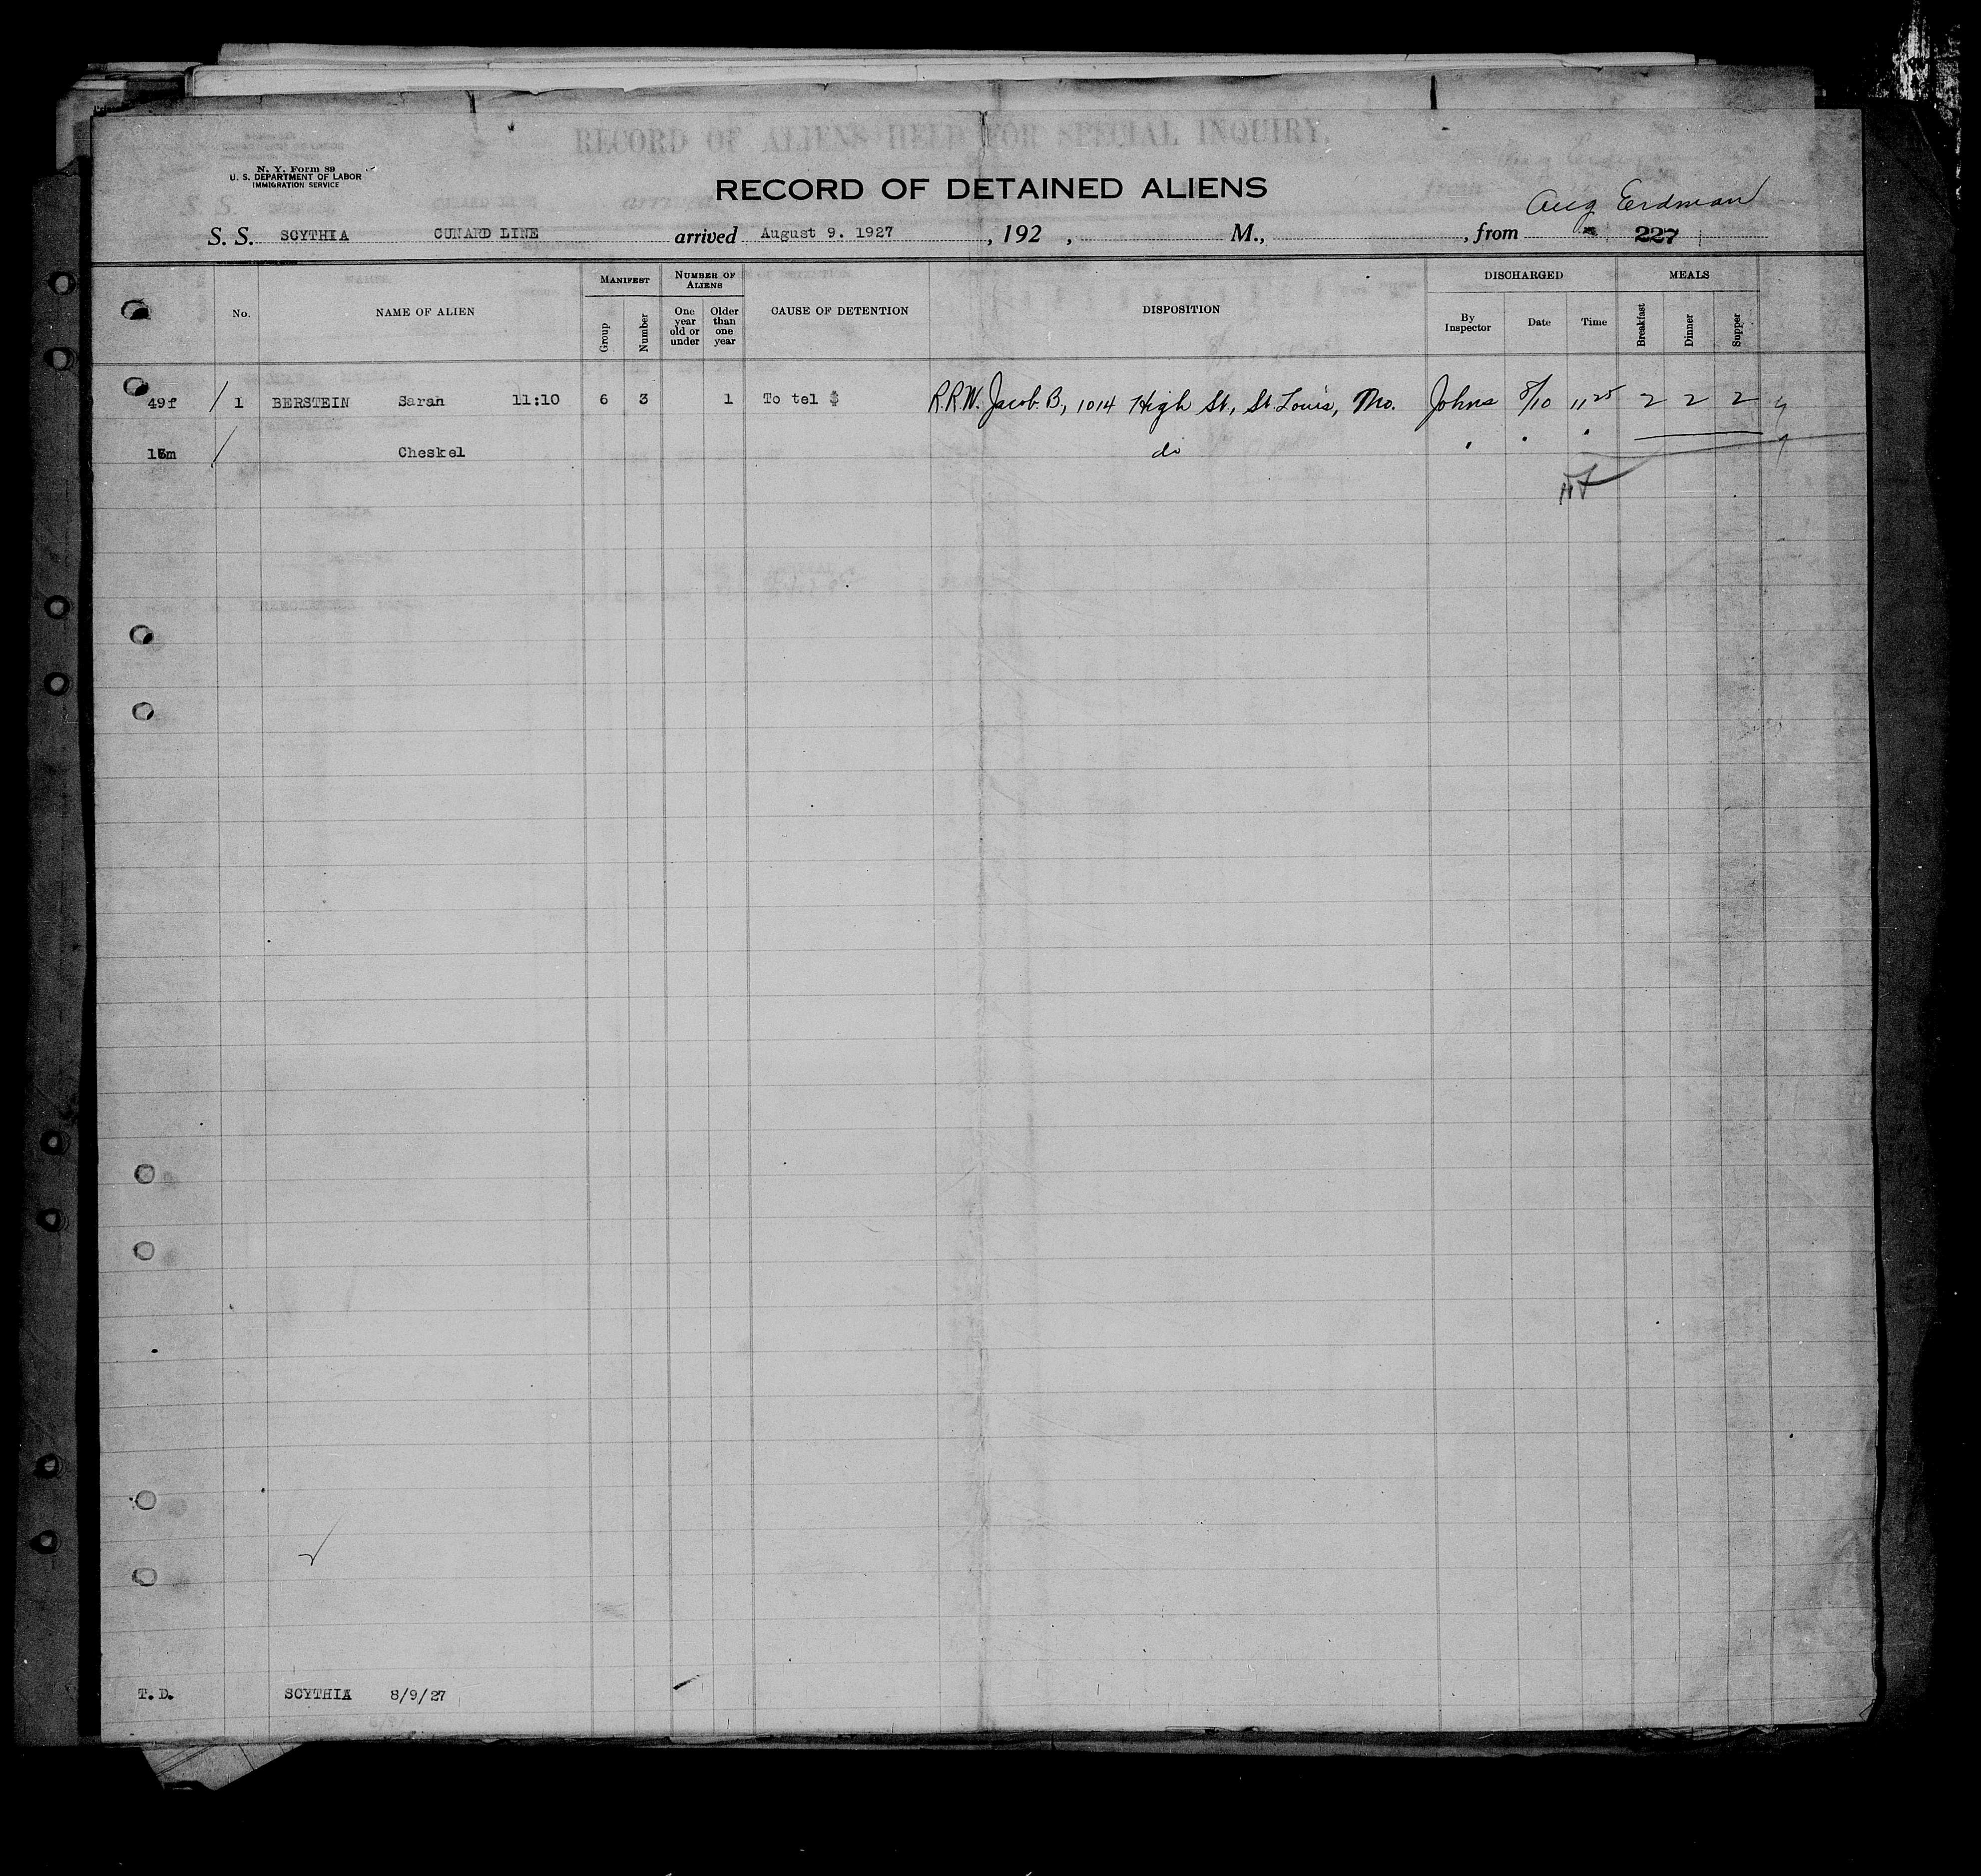 N. Y. Form 89
U. S. DEPARTMENT OF LABOR
IMMIGRATION SERVICE
RECORD OF ALIENS HELD FOR SPECIAL INQUIRY.
RECORD OF DETAINED ALIENS
Aug Erdman
S. S. SCYTHIA CUNARD LINE arrived August 9. 1927 , 192 , M., , from 227
No. NAME OF ALIEN MANIFEST Group Number NUMBER OF ALIENS One year old or under Older than one year CAUSE OF DETENTION DISPOSITION DISCHARGED By Inspector Date Time MEALS Breakfast Dinner Supper
49f / 1 BERSTEIN Sarah 11:10 6 3 1 To tel $ R.R.W. Jacob B, 1014 High St, St Louis, Mo. Johns 8/10 11 25 2 2 2
/ Cheskel do " " "
T. D. SCYTHIA 8/9/27